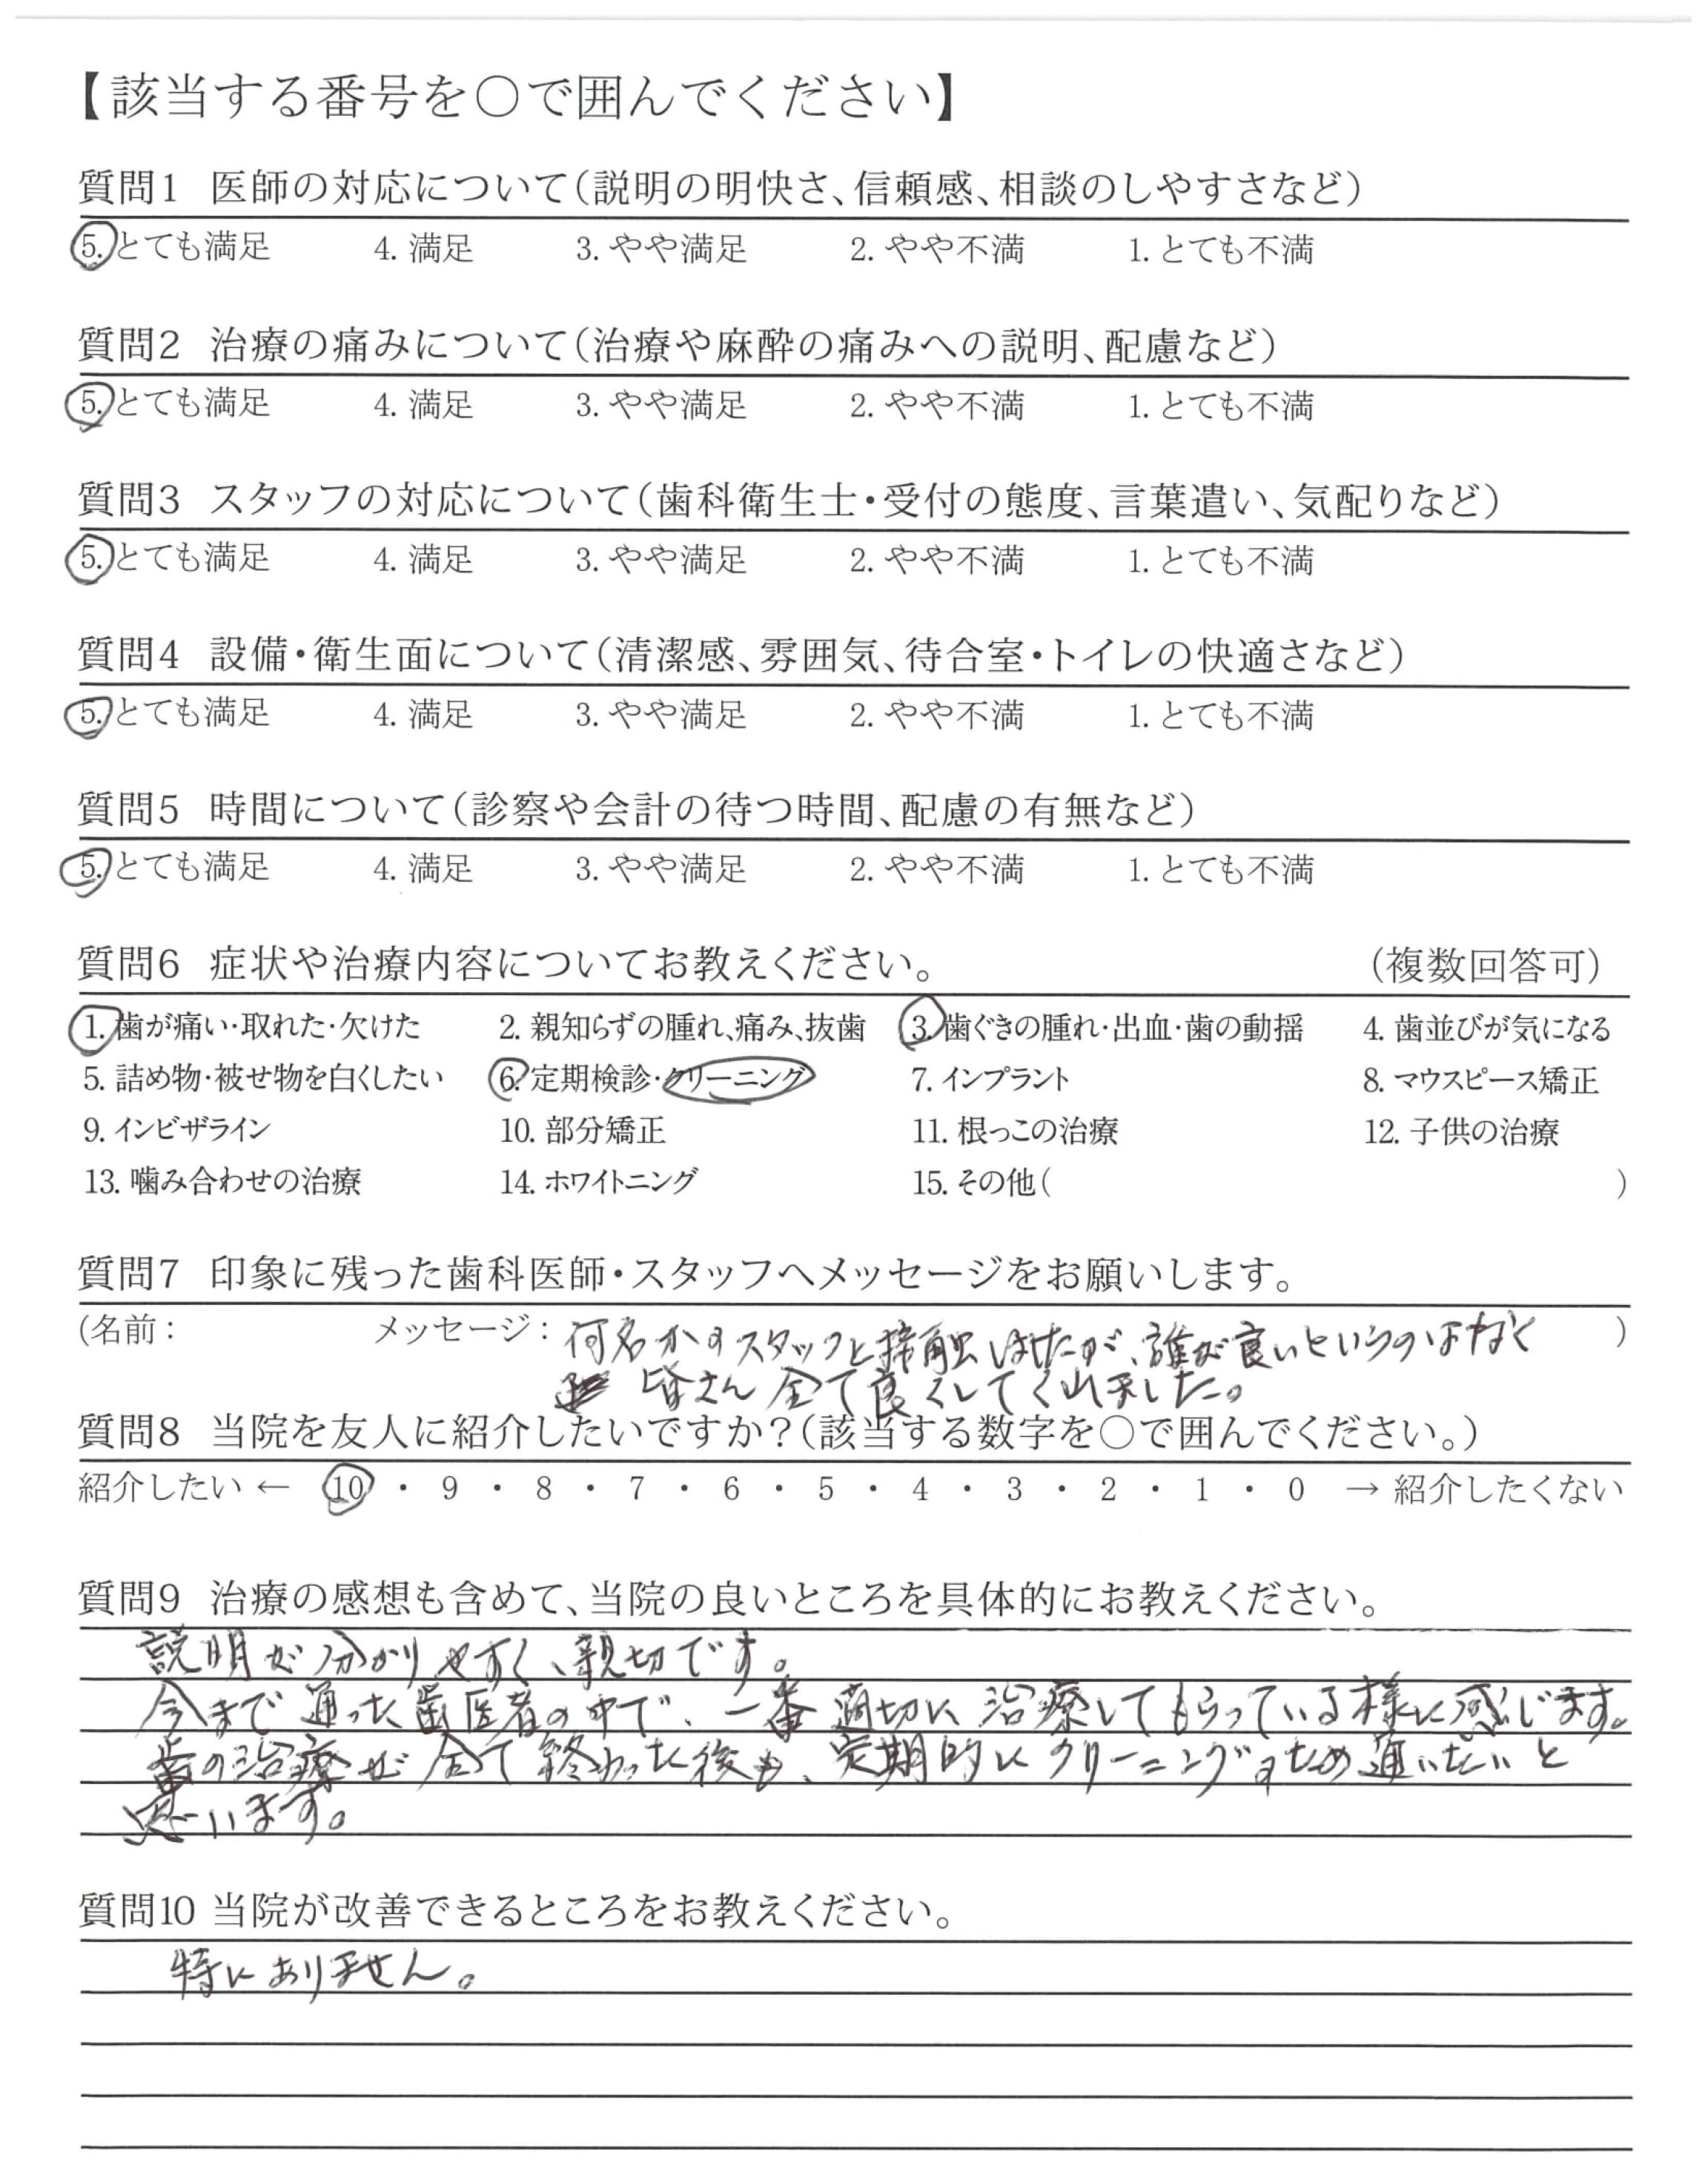 【該当する番号を○で囲んでください】
質問1 医師の対応について(説明の明快さ、信頼感、相談のしやすさなど)
5. とても満足 4. 満足 3. やや満足 2. やや不満 1. とても不満
質問2 治療の痛みについて(治療や麻酔の痛みへの説明、配慮など)
5. とても満足 4. 満足 3. やや満足 2. やや不満 1. とても不満
質問3 スタッフの対応について(歯科衛生士・受付の態度、言葉遣い、気配りなど)
5. とても満足 4. 満足 3. やや満足 2. やや不満 1. とても不満
質問4 設備・衛生面について(清潔感、雰囲気、待合室・トイレの快適さなど)
5. とても満足 4. 満足 3. やや満足 2. やや不満 1. とても不満
質問5 時間について(診察や会計の待つ時間、配慮の有無など)
5. とても満足 4. 満足 3. やや満足 2. やや不満 1. とても不満
質問6 症状や治療内容についてお教えください。 (複数回答可)
1. 歯が痛い・取れた・欠けた 2. 親知らずの腫れ、痛み、抜歯 3. 歯ぐきの腫れ・出血・歯の動揺 4. 歯並びが気になる
5. 詰め物・被せ物を白くしたい 6. 定期検診・クリーニング 7. インプラント 8. マウスピース矯正
9. インビザライン 10. 部分矯正 11. 根っこの治療 12. 子供の治療
13. 噛み合わせの治療 14. ホワイトニング 15. その他( )
質問7 印象に残った歯科医師・スタッフへメッセージをお願いします。
(名前: メッセージ: 何名かのスタッフと接触しましたが、誰が良いというのはなく )
皆さん全て良くしてくれました。
質問8 当院を友人に紹介したいですか?(該当する数字を○で囲んでください。)
紹介したい ← 10 ・ 9 ・ 8 ・ 7 ・ 6 ・ 5 ・ 4 ・ 3 ・ 2 ・ 1 ・ 0 → 紹介したくない
質問9 治療の感想も含めて、当院の良いところを具体的にお教えください。
説明が分かりやすく、親切です。
今まで通った歯医者の中で、一番適切に治療してもらっている様に感じます。
歯の治療が全て終わった後も、定期的にクリーニングのため通いたいと
思います。
質問10 当院が改善できるところをお教えください。
特にありません。